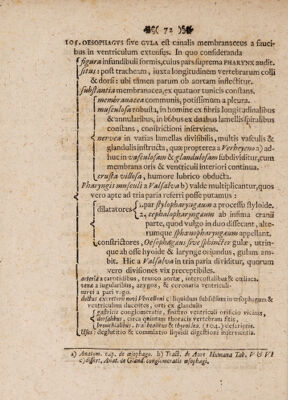 72
105. OESOPHAGVS sive GVLA est canalis membranaceus a fauci-
bus in ventriculum extensus. In quo consideranda
figura infundibuli formis, cuius pars suprema PHARYNX audit.
situs: post tracheam, iuxta longitudinem vertebrarum colli
& dorsi: ubi tamen parum ob aortam inflectitur.
substantia membranacea, ex quatuor tunicis constans.
membranacea communis, potissimum a pleura.
musculosa robusta, in homine ex fibris longitudinalibus
& annularibus, in bobus ex duabus lamellis spiralibus
constans, constrictioni inserviens.
nervea in varias lamellas divisibilis, multis vasculis &
glandulis instructa, quæ propterea a Verheyeno a) ad-
huc in vasculosam & glandulosam subdividitur, cum
membrana oris & ventriculi interiori continua.
crusta villosa, humore lubrico obducta.
Pharyngis musculi a Valsalva b) valde multiplicantur, quos
vero apte ad tria paria referri posse putamus:
dilatatores
1. par stylopharyngæum a processu styloide.
2. cephalopharyngæum ab infima cranii
parte, quod vulgo in duo dissectant, alte-
rumque sphænopharyngæum appellant.
constrictores, Oesophagæus sive sphincter gulæ, utrin-
que ab osse hyoide & larynge oriundus, gulam am-
bit. Hic a Valsalva in tria paria dividitur, quorum
vero divisiones vix perceptibiles.
arteriæ a carotidibus, trunco aortæ, intercostalibus & cœliaca.
venæ a iugularibus, azygos, & coronaria ventriculi.
nervi a pari vago.
ductus excretorii novi Vercelloni c) liquidum subfusum in œsophagum &
ventriculum ducentes, orti ex glandulis
gastricis conglomeratis, sinistro ventriculi orificio vicinis,
dorsalibus, circa quintam thoracis vertebram sitis,
bronchialibus, trachealibus & thymo (104.)
Usus: deglutitio & comminutio liquidi digestioni inservientis.
a) Anatom. cap. de œsophago. b) Tract. de Aure Humana Tab. V & VI
c) dissert. Anat. de Gland. conglomeratis œsophagi.